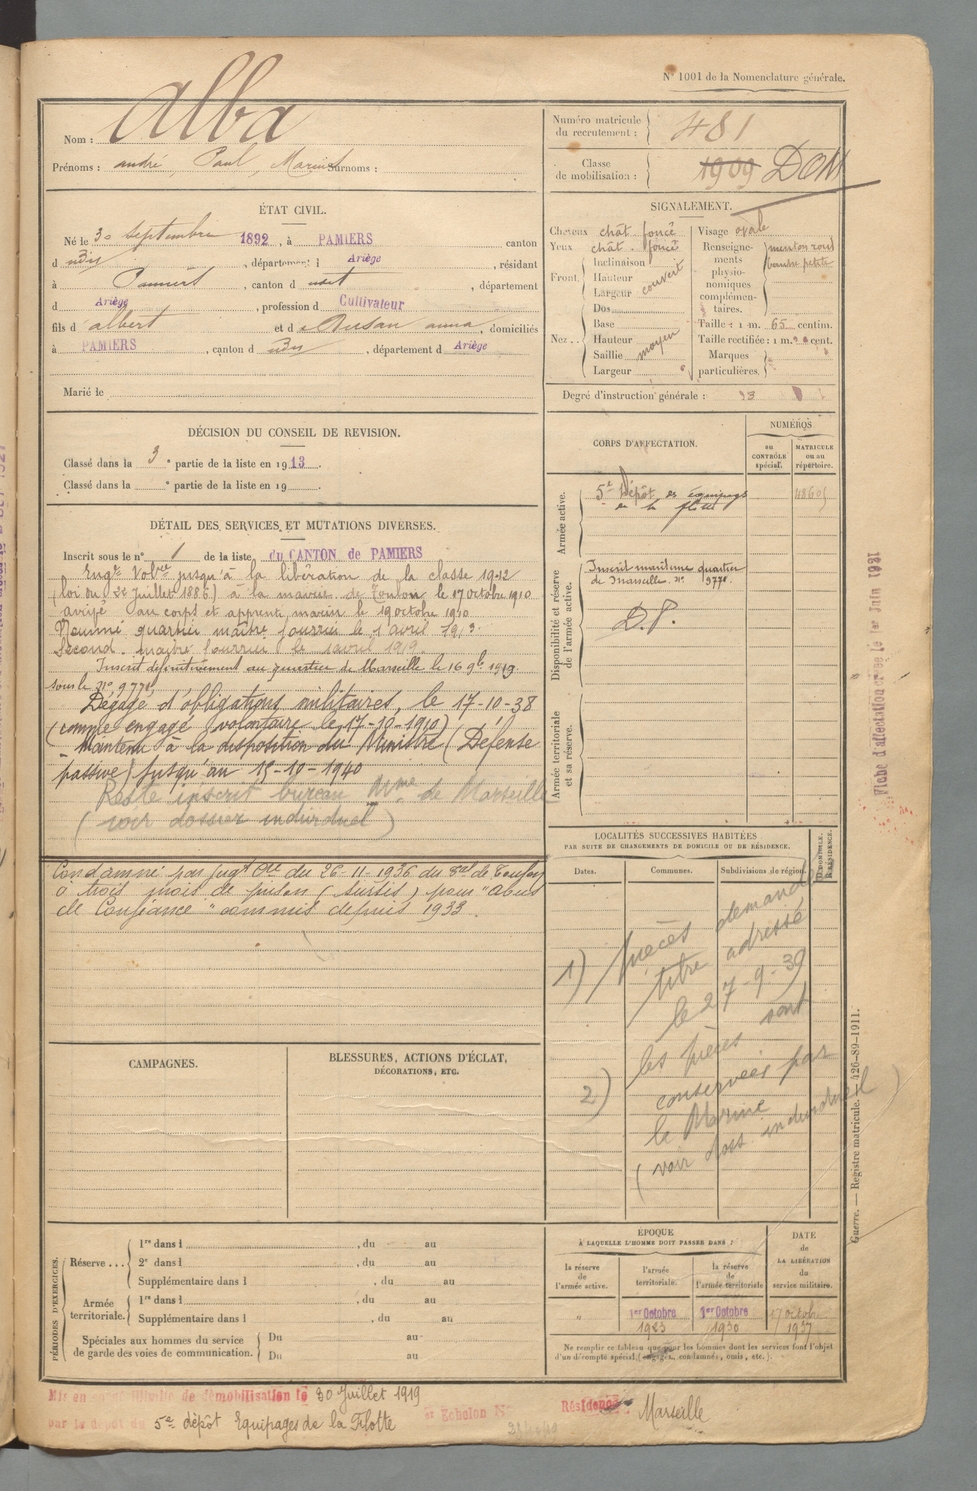 N° 1001 de la Nomenclature générale.
Nom : Alba
Prénoms : andré, Paul, Marius Surnoms :
Numéro matricule du recrutement : 481
Classe de mobilisation : 1909 DOM
ÉTAT CIVIL.
Né le 30 septembre 1892, à PAMIERS canton
d udit, département d Ariège, résidant
à Pamiers, canton d udit, département
d Ariège, profession d Cultivateur
fils d albert et d anna, domiciliés
à PAMIERS, canton d udit, département d Ariège
Marié le
SIGNALEMENT.
Cheveux chât. foncé
Yeux chât. foncé
Front. Inclinaison
Hauteur
Largeur
couvert
Nez.. Dos
Base
Hauteur
Saillie
Largeur
moyen
Visage ovale
Renseignements physionomiques complémentaires. menton rond
bouche petite
Taille : 1 m. 65 centim.
Taille rectifiée : 1 m. cent.
Marques particulières.
Degré d'instruction générale : 3
DÉCISION DU CONSEIL DE REVISION.
Classé dans la 3e partie de la liste en 1913.
Classé dans la e partie de la liste en 19 .
DÉTAIL DES SERVICES ET MUTATIONS DIVERSES.
Inscrit sous le n° 1 de la liste du CANTON de PAMIERS
Engt Volre jusqu'à la libération de la classe 1912
(loi du juillet 1886) à la mairie de Toulon le 17 octobre 1910
arrivé au corps et apprenti marin le 19 octobre 1910
Nommé quartier maître fourrier le 1 avril 1913.
Second maître fourrier le 1 avril 1919.
Inscrit définitivement au quartier de Marseille le 16 9bre 1919
sous le n° 9778
Dégagé d'obligations militaires, le 17-10-38
(comme engagé volontaire le 17-10-1910)
Maintenu à la disposition du Ministre (Défense
passive) jusqu'au 15-10-1940
Reste inscrit bureau Mme de Marseille
(voir dossier individuel)
Condamné par jugt Cre du 26-11-1936 du de Toulon
à trois mois de prison (sursis) pour "abus
de Confiance" commis depuis 1933.
CORPS D'AFFECTATION.
NUMÉROS
au CONTRÔLE spécial.
MATRICULE ou au répertoire.
Armée active.
5e Dépôt des équipages
de la flotte
4860
Disponibilité et réserve de l'armée active.
Inscrit maritime quartier
de Marseille n° 9778.
D.P.
Armée territoriale et sa réserve.
LOCALITÉS SUCCESSIVES HABITÉES
PAR SUITE DE CHANGEMENTS DE DOMICILE OU DE RÉSIDENCE.
Dates.
Communes.
Subdivisions de région.
DOMICILE. RÉSIDENCE.
1) pièces demandé
titre adressé
le 27-9-39
2) les pièces sont
conservées par
la Marine
(voir doss. individuel)
CAMPAGNES.
BLESSURES, ACTIONS D'ÉCLAT,
DÉCORATIONS, ETC.
PÉRIODES D'EXERCICES.
Réserve... 1re dans l , du au
2e dans l , du au
Supplémentaire dans l , du au
Armée territoriale. 1re dans l , du au
Supplémentaire dans l , du au
Spéciales aux hommes du service
de garde des voies de communication. Du au
Du au
ÉPOQUE
À LAQUELLE L'HOMME DOIT PASSER DANS :
la réserve de l'armée active.
l'armée territoriale.
la réserve de l'armée territoriale
DATE de LA LIBÉRATION du service militaire.
"
1er Octobre 1923
1er Octobre 1930
17 octobre 1937
Ne remplir ce tableau que pour les hommes dont les services font l'objet
d'un décompte spécial (engagés, condamnés, omis, etc.).
Mis en congé illimité de démobilisation le 30 Juillet 1919
par le dépôt du 5e dépôt Equipages de la Flotte
Echelon N°
Résidence Marseille
Fiche d'affectation créée le 1er Juin 1931
Guerre. — Registre matricule. 426-89-1911.